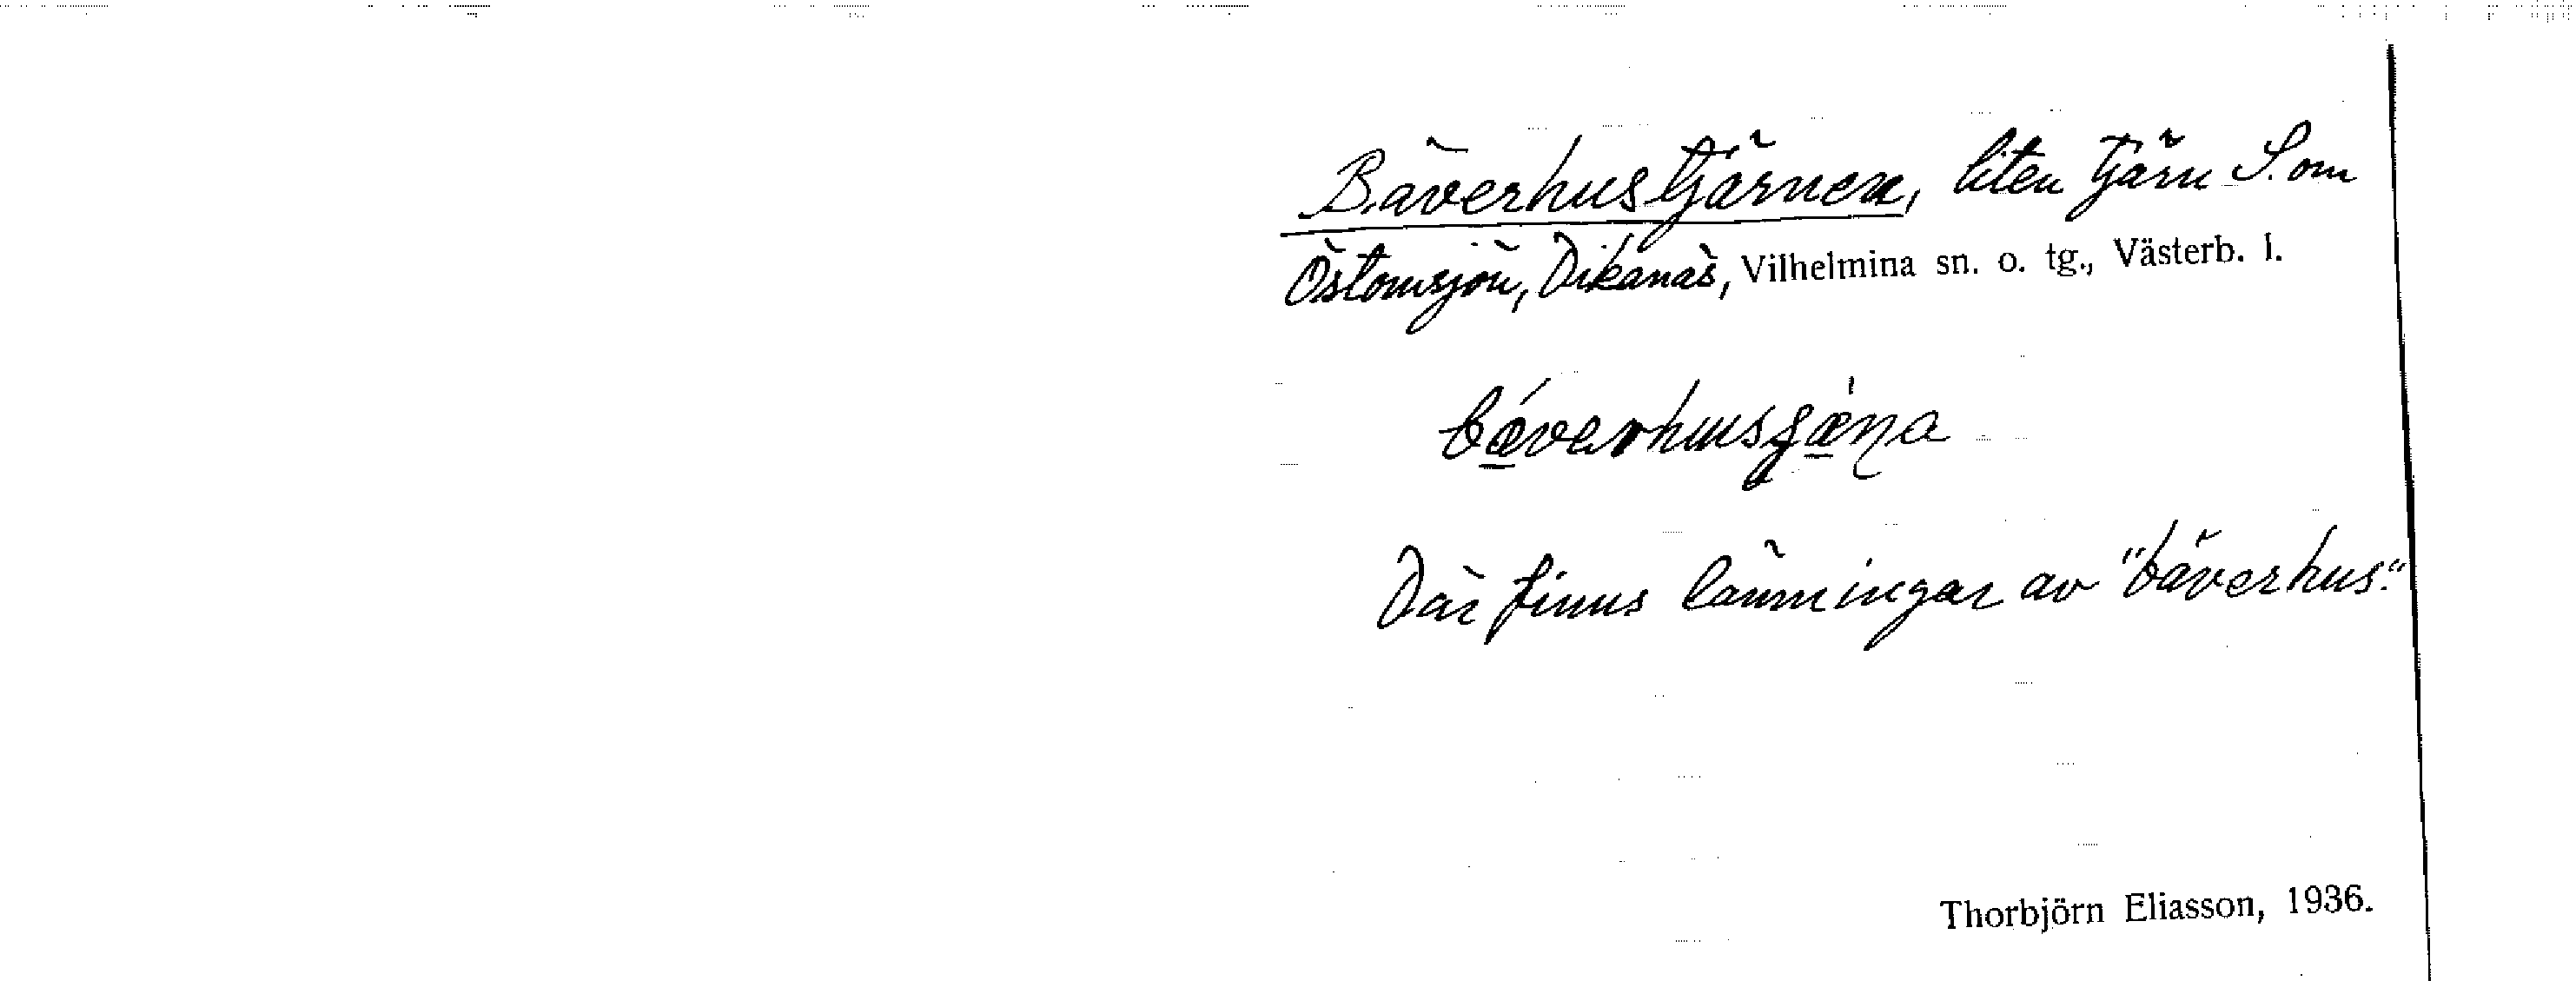 Bäverhustjärnen, liten tjärn S. om
Östomsjön, Dikanäs, Vilhelmina sn. o. tg., Västerb. l.
Där finns lämningar av "bäverhus".
Thorbjörn Eliasson, 1936.